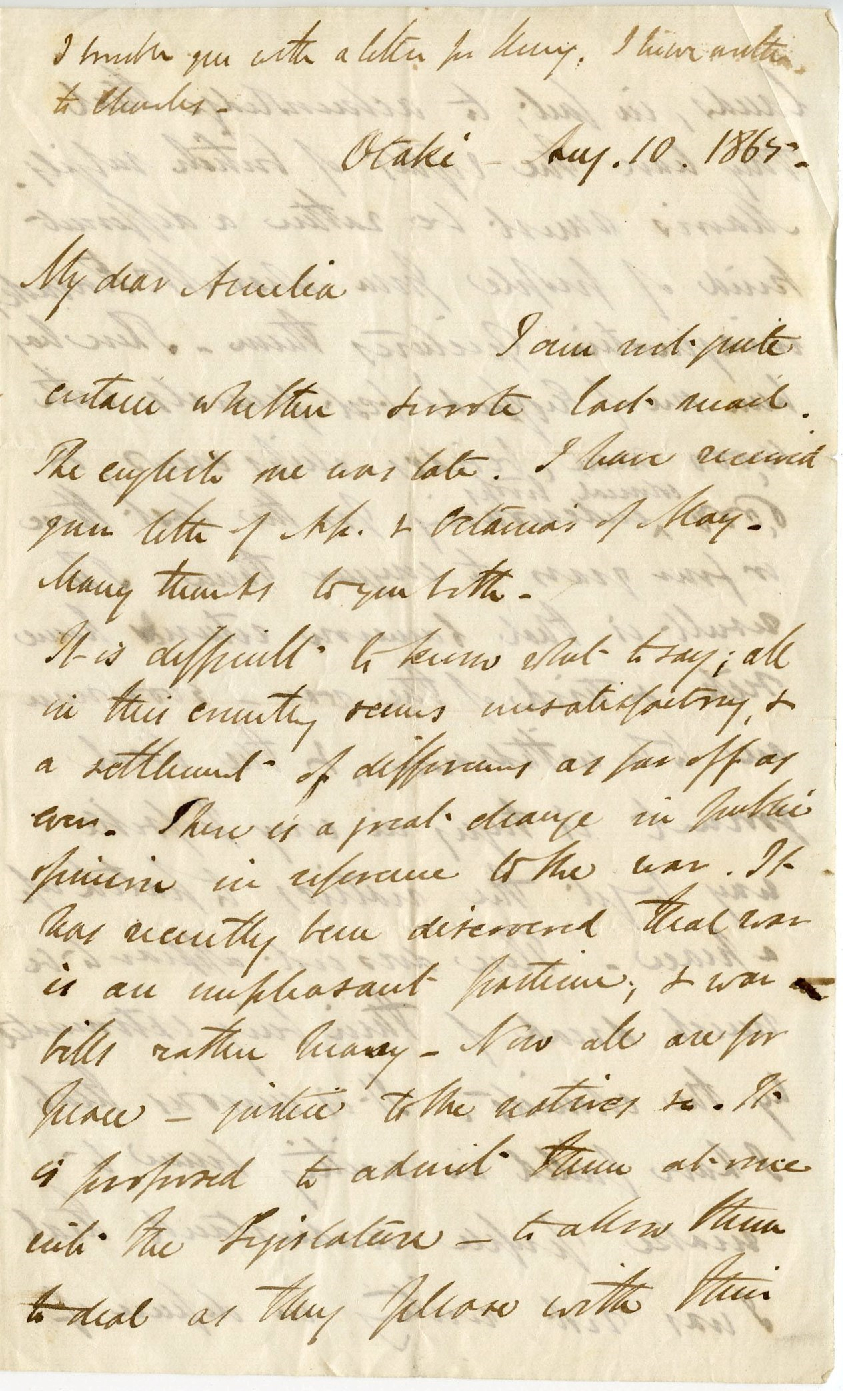 I trouble you with a letter for Henry. I have written
to Charles -
Otaki - Aug. 10. 1865 -
My dear Amelia
I am not quite
certain whether I wrote last mail.
The english one was late. I have received
your letter of Ap. & Octavius's of May -
Many thanks to you both -
It is difficult to know what to say; all
in this country seems unsatisfactory, &
a settlement of differences as far off as
ever. There is a great change in public
opinion in reference to the war. It
has recently been discovered that war
is an unpleasant pastime; & war
bills rather heavy - Now all are for
peace - justice to the natives &c. It
is proposed to admit them at once
into the Legislature - to allow them
to deal as they please with their